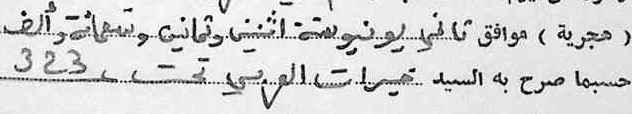 ( هجرية ) موافق ثاني يونيو سنة اثنين وثمانين وتسعمائة وألف
حسبما صرح به السيد خيرات العربي تحت 323